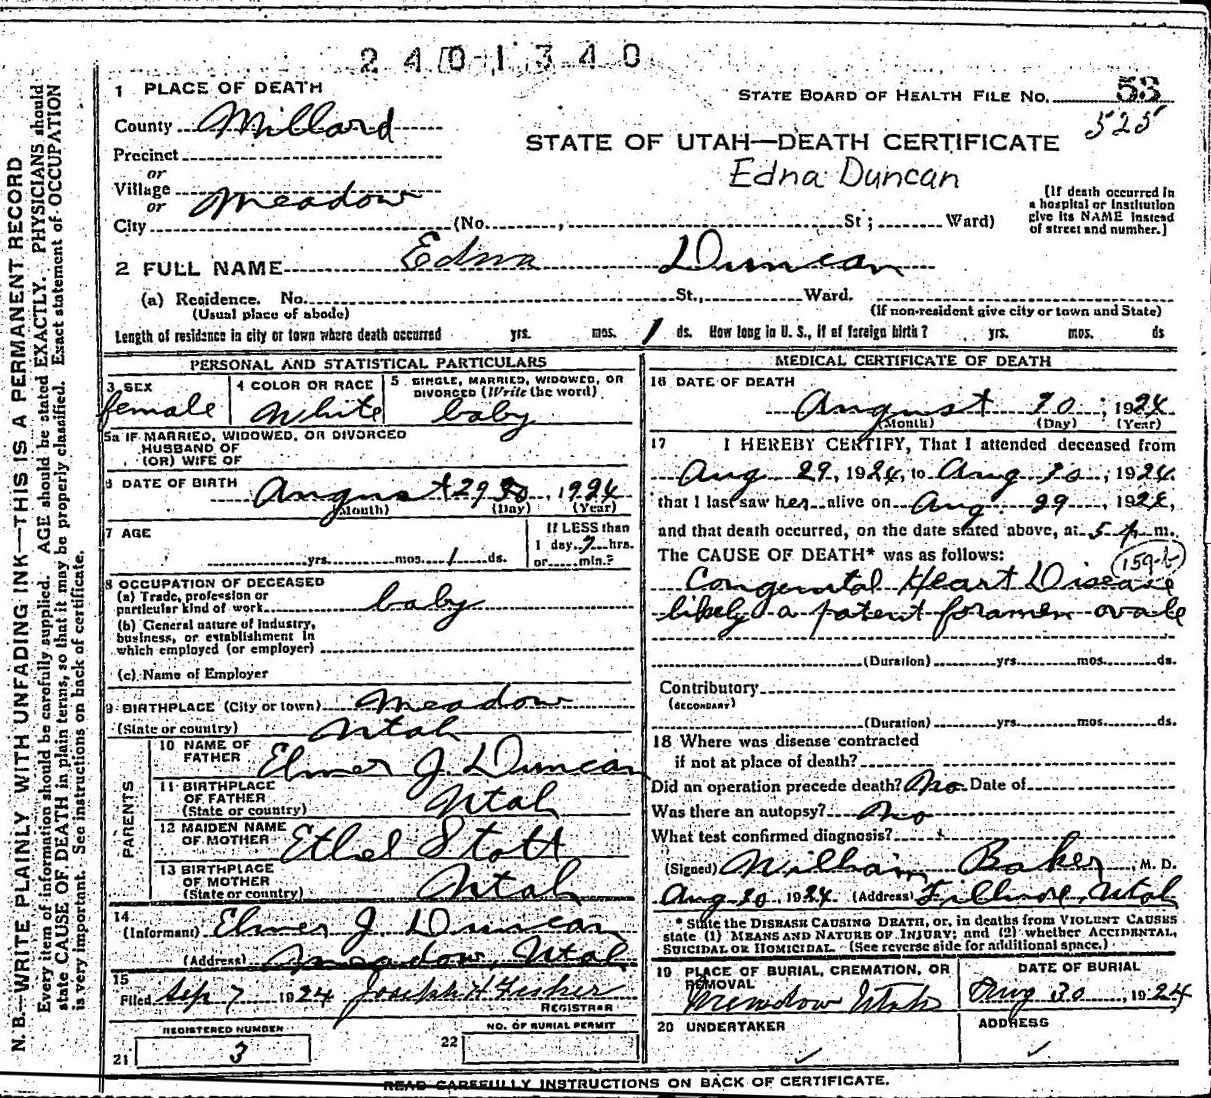 2401340
1 PLACE OF DEATH
STATE BOARD OF HEALTH FILE NO. 53
525
County Millard
STATE OF UTAH—DEATH CERTIFICATE
Precinct
Edna Duncan
or
Village Meadow
or
City (No. , St ; Ward)
[If death occurred in
a hospital or institution
give its NAME instead
of street and number.]
2 FULL NAME Edna Duncan
(a) Residence. No. St., Ward.
(Usual place of abode) (If non-resident give city or town and State)
Length of residence in city or town where death occurred yrs. mos. 1 ds. How long in U. S., if of foreign birth? yrs. mos. ds
PERSONAL AND STATISTICAL PARTICULARS
3 SEX
female
4 COLOR OR RACE
White
5 SINGLE, MARRIED, WIDOWED, OR
DIVORCED (Write the word)
baby
5a IF MARRIED, WIDOWED, OR DIVORCED
HUSBAND OF
(OR) WIFE OF
6 DATE OF BIRTH
August 29 30, 1924
(Month) (Day) (Year)
7 AGE
yrs. mos. 1 ds.
If LESS than
1 day 7 hrs.
or min.?
8 OCCUPATION OF DECEASED
(a) Trade, profession or
particular kind of work baby
(b) General nature of industry,
business, or establishment in
which employed (or employer)
(c) Name of Employer
9 BIRTHPLACE (City or town) Meadow
(State or country) Utah
PARENTS
10 NAME OF
FATHER Elmer J. Duncan
11 BIRTHPLACE
OF FATHER
(State or country) Utah
12 MAIDEN NAME
OF MOTHER Ethel Stott
13 BIRTHPLACE
OF MOTHER
(State or country) Utah
14
(Informant) Elmer J. Duncan
(Address) Meadow, Utah
15
Filed Sep 7 1924 Joseph H Fisher
REGISTRAR
REGISTERED NUMBER
21 3
NO. OF BURIAL PERMIT
22
MEDICAL CERTIFICATE OF DEATH
16 DATE OF DEATH
August 30, 1924
(Month) (Day) (Year)
17 I HEREBY CERTIFY, That I attended deceased from
Aug 29, 1924, to Aug 30, 1924
that I last saw her alive on Aug 29, 1924,
and that death occurred, on the date stated above, at 5 p m.
The CAUSE OF DEATH* was as follows:
159-b
Congenital Heart Disease
likely a patent foramen ovale
(Duration) yrs. mos. ds.
Contributory
(SECONDARY)
(Duration) yrs. mos. ds.
18 Where was disease contracted
if not at place of death?
Did an operation precede death? No Date of
Was there an autopsy? No
What test confirmed diagnosis?
(Signed) William Baker M. D.
Aug 30, 1924 (Address) Fillmore, Utah
* State the DISEASE CAUSING DEATH, or, in deaths from VIOLENT CAUSES
state (1) MEANS AND NATURE OF INJURY; and (2) whether ACCIDENTAL,
SUICIDAL OR HOMICIDAL. (See reverse side for additional space.)
19 PLACE OF BURIAL, CREMATION, OR
REMOVAL
Meadow Utah
DATE OF BURIAL
Aug 30, 1924
20 UNDERTAKER
ADDRESS
READ CAREFULLY INSTRUCTIONS ON BACK OF CERTIFICATE.
N. B.—WRITE PLAINLY WITH UNFADING INK—THIS IS A PERMANENT RECORD
Every item of information should be carefully supplied. AGE should be stated EXACTLY. PHYSICIANS should
state CAUSE OF DEATH in plain terms, so that it may be properly classified. Exact statement of OCCUPATION
is very important. See instructions on back of certificate.